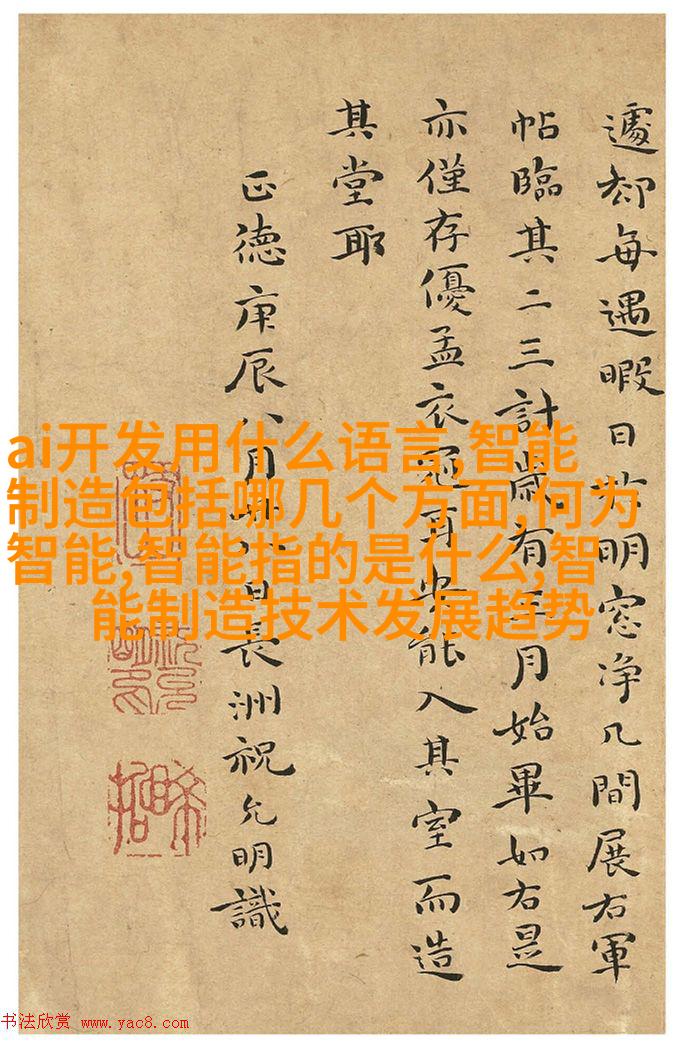 遽却每遇暇日於明窓净几間展右軍
帖臨其二三計歲有年月始畢如右是
亦僅存優孟衣冠耳安能入其室而造
其堂耶
正德庚辰八月廿八日長洲祝允明識
ai开发用什么语言,智能
制造包括哪几个方面,何为
智能,智能指的是什么,智
能制造技术发展趋势
书法欣赏 www.yac8.com